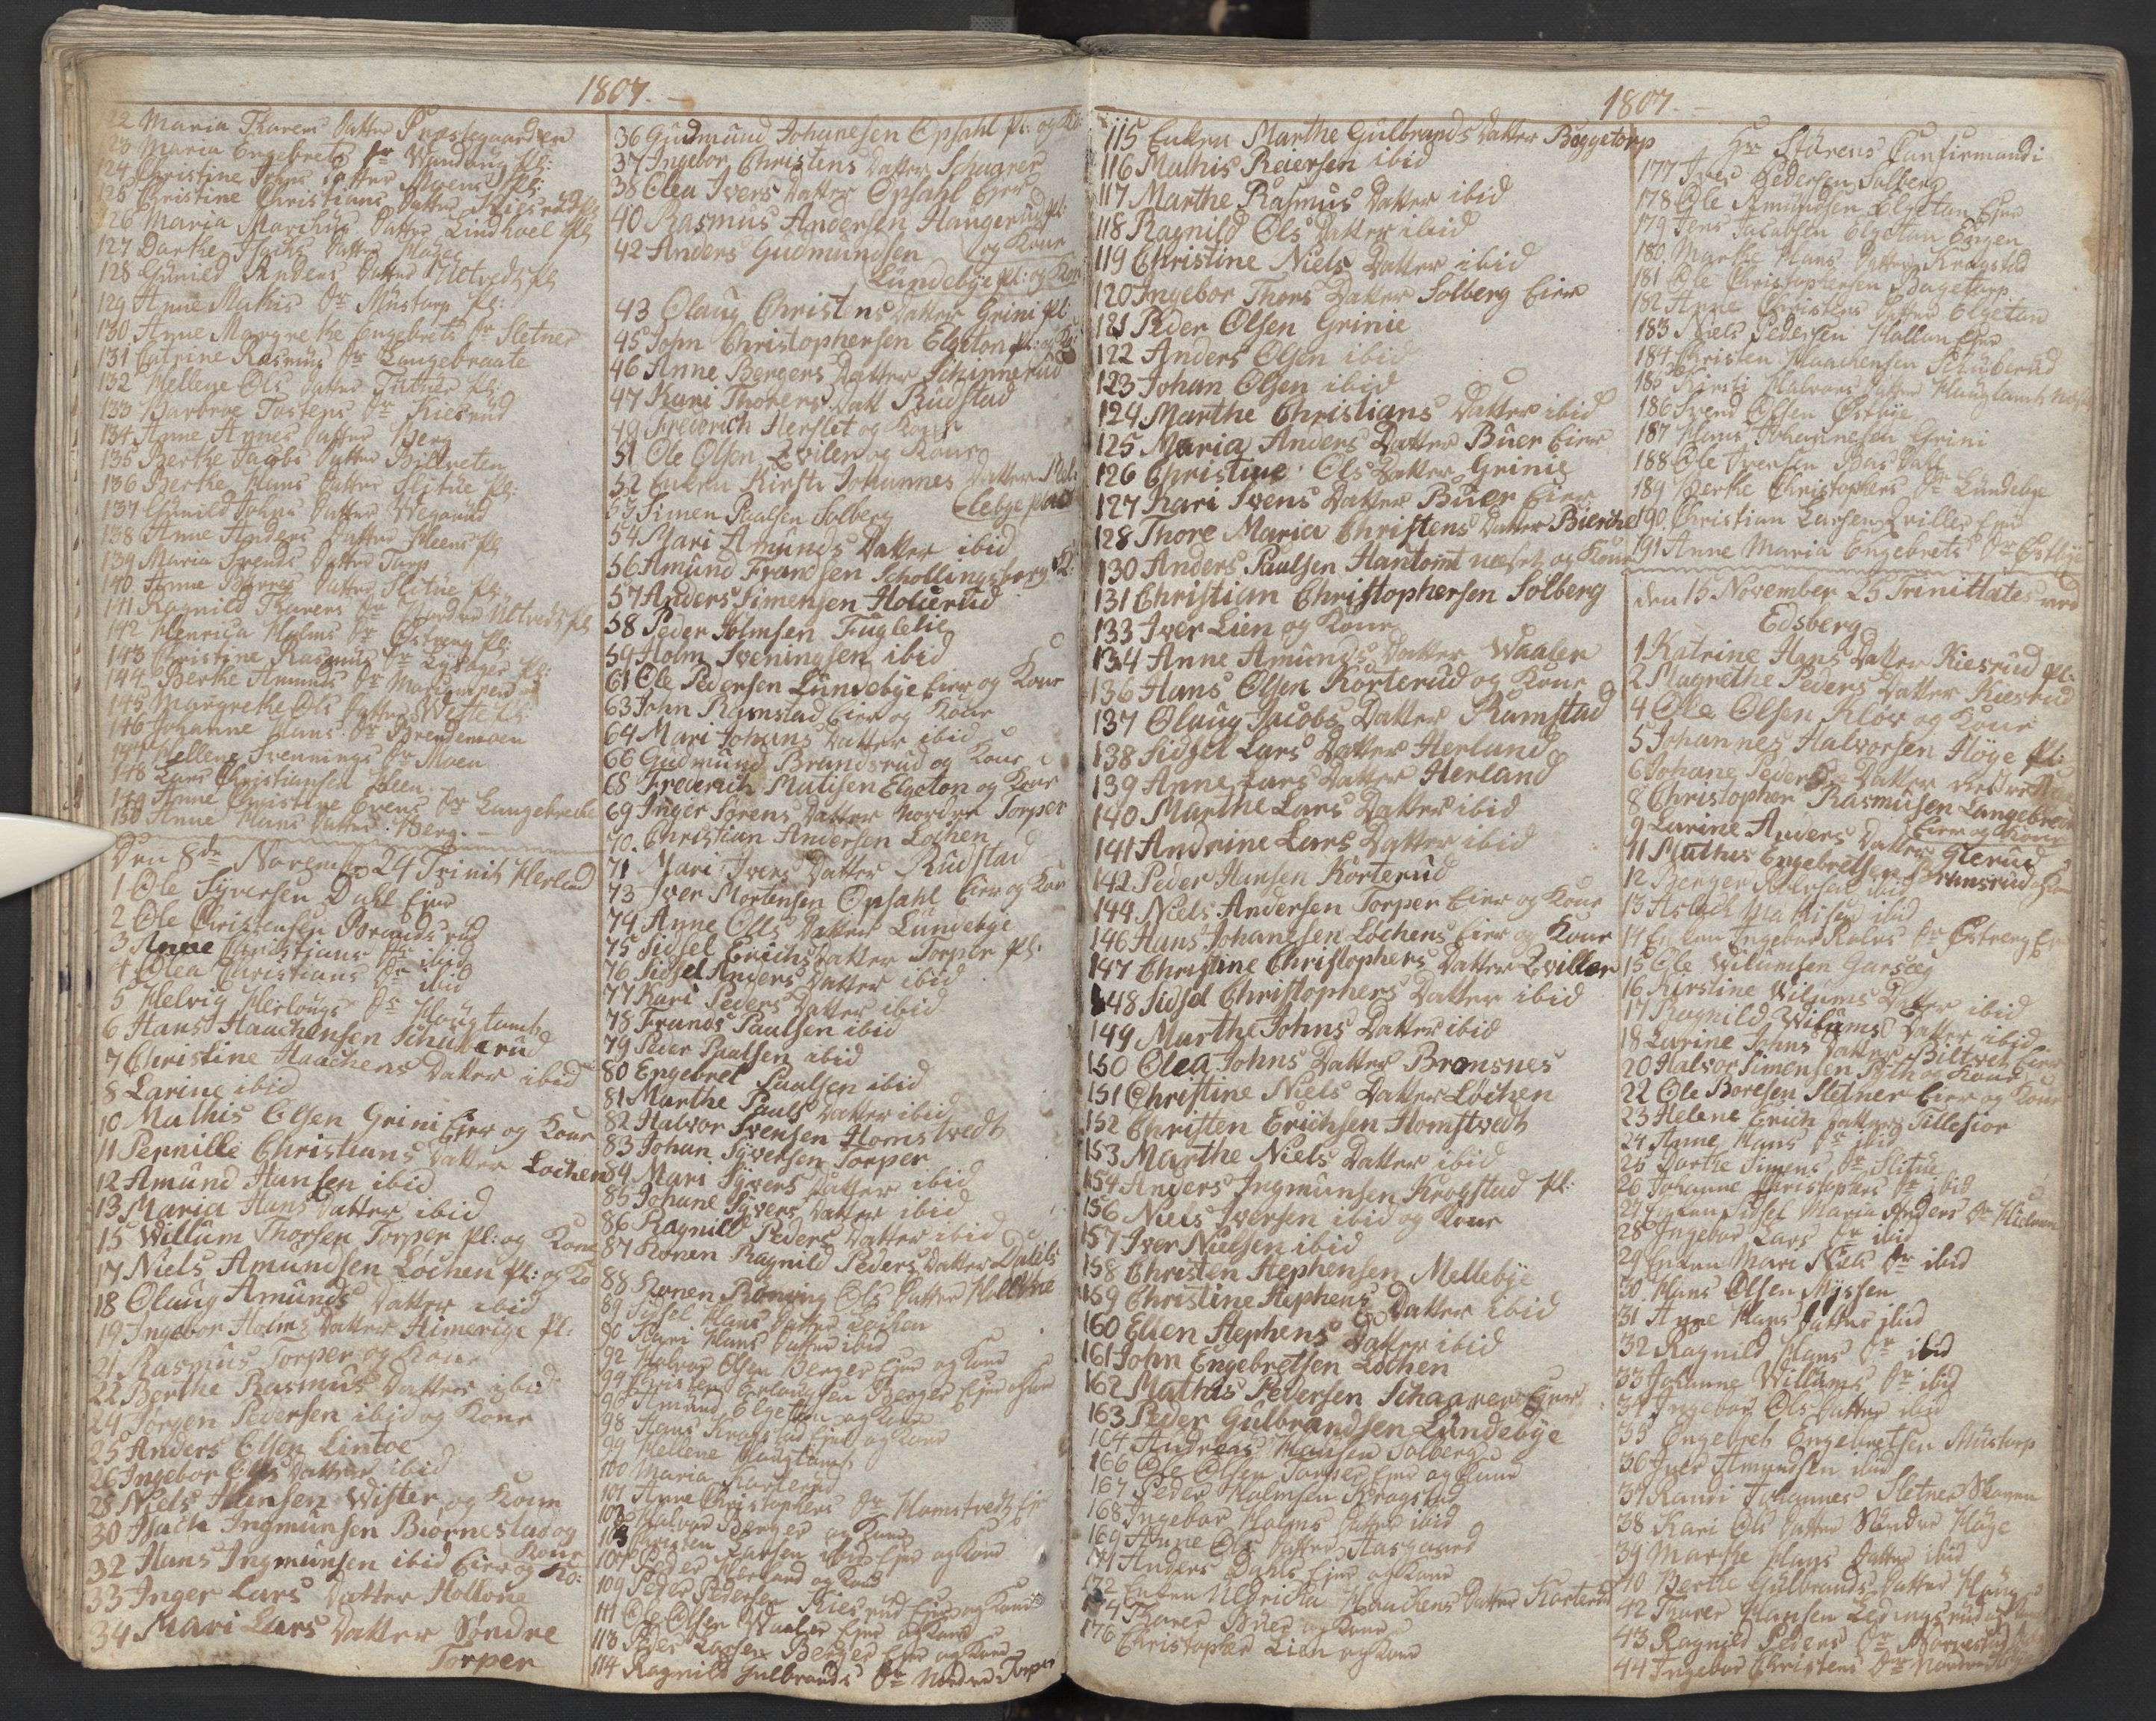 1807.
22 Maria Thorers Datter Præstegaarden
23 Maria Engebrets Dr Wandung Pl:
124 Christine Johns Datter Moens Pl:
125 Christine Christians Datter Kiesrud Pl
126 Maria Marthis Datter Lindhoel Pl
127 Dorthe Isachs Datter
128 Gunild Anders Datter Ultvedt Pl
129 Anne Mathis Dr Mustorp Pl:
130 Anne Margrethe Engebrets Dr Sletner
131 Catrine Rasmus Dr Langebraate
132 Hellene Ols Datter Pl:
133 Barbroe Tostens Dr Kiesrud
134 Anne Arnes Datter Berg
135 Berthe Jacobs Datter Biltveten
136 Berthe Hans Datter Slitue Pl:
137 Gunild Johns Datter
138 Anne Anders Datter Pl
139 Maria Svends Datter Torp
140 Anne Børres Datter Slitue Pl
141 Ragnild Thorers Dr Nordre Ultvedt Pl
142 Henrica Holms Dr Østreng Pl
143 Christine Rasmus Dr Pl:
144 Berthe Amunds Dr
145 Margrethe Ols Datter Pl:
146 Johanne Hans Dr Brendemoen
147 Hellene Svennings Dr Moen
148 Lars Christiansen
149 Anne Christine Evens Dr Langebrecke
150 Anne Hans Datter Berg.
Den 8de Novembr 24 Trinit Herland
1 Ole Syversen Dahl Eier
2 Ole Christensen Brandsrud
3 Anne Christians Dr ibid
4 Olea Christians Dr ibid
5 Helvig Herlougs Dr Haugtomt
6 Hans Haachensen Schuberud
7 Christine Haachens Datter ibid
8 Larine ibid
10 Mathis Olsen Grini Eier og Kone
11 Pernille Christians Datter Lochen
12 Amund Hansen ibid
13 Maria Hans Datter ibid
15 Willum Thorsen Torper Pl: og Kone
17 Niels Amundsen Lochen Pl: og Ko
18 Olaug Amunds Datter ibid
19 Ingebor Holms Datter Himerige Pl:
21 Rasmus Torper og Kone
22 Berthe Rasmus Datter ibid
24 Jørgen Pedersen ibid og Kone
25 Anders Olsen Lintoe
26 Ingebor Ols Datter ibid
28 Niels Hansen Wister og Kone
30 Isach Ingmunsen Biørnestad og Kone
32 Hans Ingmunsen ibid Eier og Ko:
33 Inger Lars Datter Hollone
34 Mari Lars Datter Søndre
Torper
36 Gudmund Johanesen Opsahl Pl: og Ko:
37 Ingebor Christens Datter Schaarer
38 Olea Ivers Datter Opsahl Eier
40 Rasmus Andersen Hangerud Pl:
og Kone
42 Anders Gudmundsen
Lundebye Pl: og Kon
43 Olaug Christens Datter Grini Pl
45 John Christophersen Elgeton Pl: og Ko:
46 Anne Bergers Datter Schinnerud
47 Kari Thorers Datt Rudstad
49 Frederich Herslet og Kone
51 Ole Olsen Zviler og Kone
52 Enken Kirsti Johannes Datter
53 Simen Paalsen Solberg
54 Mari Amunds Datter ibid
56 Amund Frandsen Schollingsberg K:
57 Anders Simensen Holierud
58 Peder Holmsen Fuglelie
59 Holm Sveningsen ibid
61 Ole Pedersen Lundebye Eier og Kone
63 John Ramstad Eier og Kone
64 Mari Johans Datter ibid
66 Gudmund Brandsrud og Kone
68 Frederich Matisen Elgeton og Kone
69 Inger Sørens Datter Nordre Torper
70. Christian Andersen Lochen
71 Mari Ivers Datter Rudstad
73 Iver Mortensen Opsahl Eier og Kon
74 Anne Olls Datter Lundebye
75 Sidsel Erichs Datter Torper Pl:
76 Sidsel Anders Datter ibid
77 Kari Peders Datter ibid
78 Frands Paulsen ibid
79 Peder Paulsen ibid
80 Engebret Paulsen ibid
81 Marthe Pauls Datter ibid
82 Halvor Svensen Homstvedt
83 Johan Syversen Torper
84 Mari Syvers Datter ibid
85 Johane Syvers Datter ibid
86 Ragnild Peders Datter ibid
87 Konen Ragnild Peders Datter
88 Konen Rønnig Ols Datter Hollone
89 Sidsel Hans Datter Lochen
90 Kari Hans Datter ibid
92 Holvor Olsen Berger Eier og Kone
94 Christen Erlandsen Berger Eier og Kone
96 Amund Elgetton og Kone
98 Hans Krogstad Eier og Kone
99 Hellene Haugtomt
100 Maria Korterud
101 Anne Christophers Dr Homstvedt Eje
103 Halvor Berger og Kone
105 Christen Larsen ibid Ejer og Kone
107 Peder Herland og Kone
109 Peder Pedersen Kiesrud Ejer og Kone
111 Ole Olsen Waaler Ejer og Kone
113 Peder Larsen Berger Ejer og Kone
114 Ragnild Gulbrands Dr Nordre Torper
1807.
115 Enken Marthe Gulbrands Datter Bøggetorp
116 Mathis Reiersen ibid
117 Marthe Rasmus Datter ibid
118 Ragnild Ols Datter ibid
119 Christine Niels Datter ibid
120 Ingebor Thors Datter Solberg Eier
121 Peder Olsen Grinie
122 Anders Olsen ibid
123 Johan Olsen ibid
124 Marthe Christians Datter ibid
125 Maria Anders Datter Buer Eier
126 Christine Ols Datter Grinie
127 Kari Svens Datter Buer Eier
128 Thore Maria Christens Datter Bierche
130 Anders Paulsen Hantomt neset og Kone
131 Christian Christophersen Solberg
133 Iver Lien og Kone
134 Anne Amunds Datter Waaler
136 Hans Olsen Korterud og Kone
137 Olaug Jacobs Datter Ramstad
138 Sidsel Lars Datter Herland
139 Anne Lars Datter Herland
140 Marthe Lars Datter ibid
141 Andrine Lars Datter ibid
142 Peder Hansen Korterud
144 Niels Andersen Torper Eier og Kone
146 Hans Johanesen Lochens Eier og Kone
147 Christine Christophers Datter Zviller
148 Sidsel Christophers Datter ibid
149 Marthe Johns Datter ibid
150 Olea Johns Datter Bronsnes
151 Christine Niels Datter Løchen
152 Christen Erichsen Homstvedt
153 Marthe Niels Datter ibid
154 Anders Ingmunsen Krogstad Pl:
156 Niels Iversen ibid og Kone
157 Iver Nielsen ibid
158 Christen Stephensen Mellebye
159 Christine Stephens Datter ibid
160 Ellen Stephens Datter ibid
161 John Engebretsen Lochen
162 Mathis Pedersen Schaarer Eier
163 Peder Gulbrandsen Lundebye
164 Andreas Hansen Solberg
166 Ole Olsen Torper Ejer og Kone
167 Peder Holmsen Krogstad
168 Ingebor Holms Datter ibid
169 Anne Ols Datter Aasgaard
171 Anders Dahls Ejer og Kone
172 Enken Uldricka Haachens Datter Korterud
174 Thorer Buer og Kone
176 Christopher Lien og Kone
Hr Størens Confirmandi
177 Iver Pedersen Solberg
178 Ole Amundsen Elgetan Ejer
179 Jens Jacobsen Elgetan Engen
180. Marthe Hans Datter Krogstad
181 Ole Christophersen Bagetorp
182 Anne Christens Datter Elgetan
183 Niels Pedersen Hollon Ejer
184 Christen Haachensen Scuberud
185 Kirsti Halvors Datter Haugtomt
186 Svend Olsen Østbye
187 Hans Johannesen Grini
188 Ole Iversen
189 Berthe Christophers Dr Lundebye
190. Christian Larsen Zviller Ejer
191 Anne Maria Engebrets Dr Østbye
den 15 November 25 Trinittates ved
Edsberg
1 Katrine Hans Datter Kiesrud Pl:
2 Magrethe Peders Datter Kiesrud
4 Ole Olsen Kløv og Kone
5 Johannes Halvorsen Høge Pl:
6 Johane Peders Datter nedre
8 Christopher Rasmusen Langebrech
Eier og Kone
9 Larine Anders Datter Glerud
11 Mathis Engebretsen Brunsrud
12 Berger ibid
13 Aslach Mathisen ibid
14 Enken Ingebor Rolvs Dr Østreng
15 Ole Wilumsen Garseg
16 Kirstine Wilums Datter ibid
17 Ragnild Wilums Datter ibid
18 Larine Johns Datter Biltvet Eier
20 Halvor Simensen og Kone
22 Ole Boresen Sletner Eier og Kone
23 Helene Erich Datter Tillesior
24 Anne Hans Dr ibid
25 Dorthe Simens Dr Slitue
26 Johanne Christophers Dr ibid
27 Enken Sidsel Maria Anders Dr
28 Ingebor Lars Dr ibid
29 Enken Mari Niels Dr ibid
30. Hans Olsen Myssen
31 Anne Hans Datter ibid
32 Ragnild Hans Dr ibid
33 Johanne Willums Dr ibid
34 Ingebor Ols Datter ibid
35 Engebret Engebretsen Mustorp
36 Iver Amundsen ibid
37 Johannes Sletner
38 Kari Ols Datter Søndre Høge
39 Marthe Hans Datter ibid
40 Berthe Gulbrands Datter
42 Thorer Hansen og
43 Ragnild Peders Dr
44 Ingebor Christens Dr Nordre